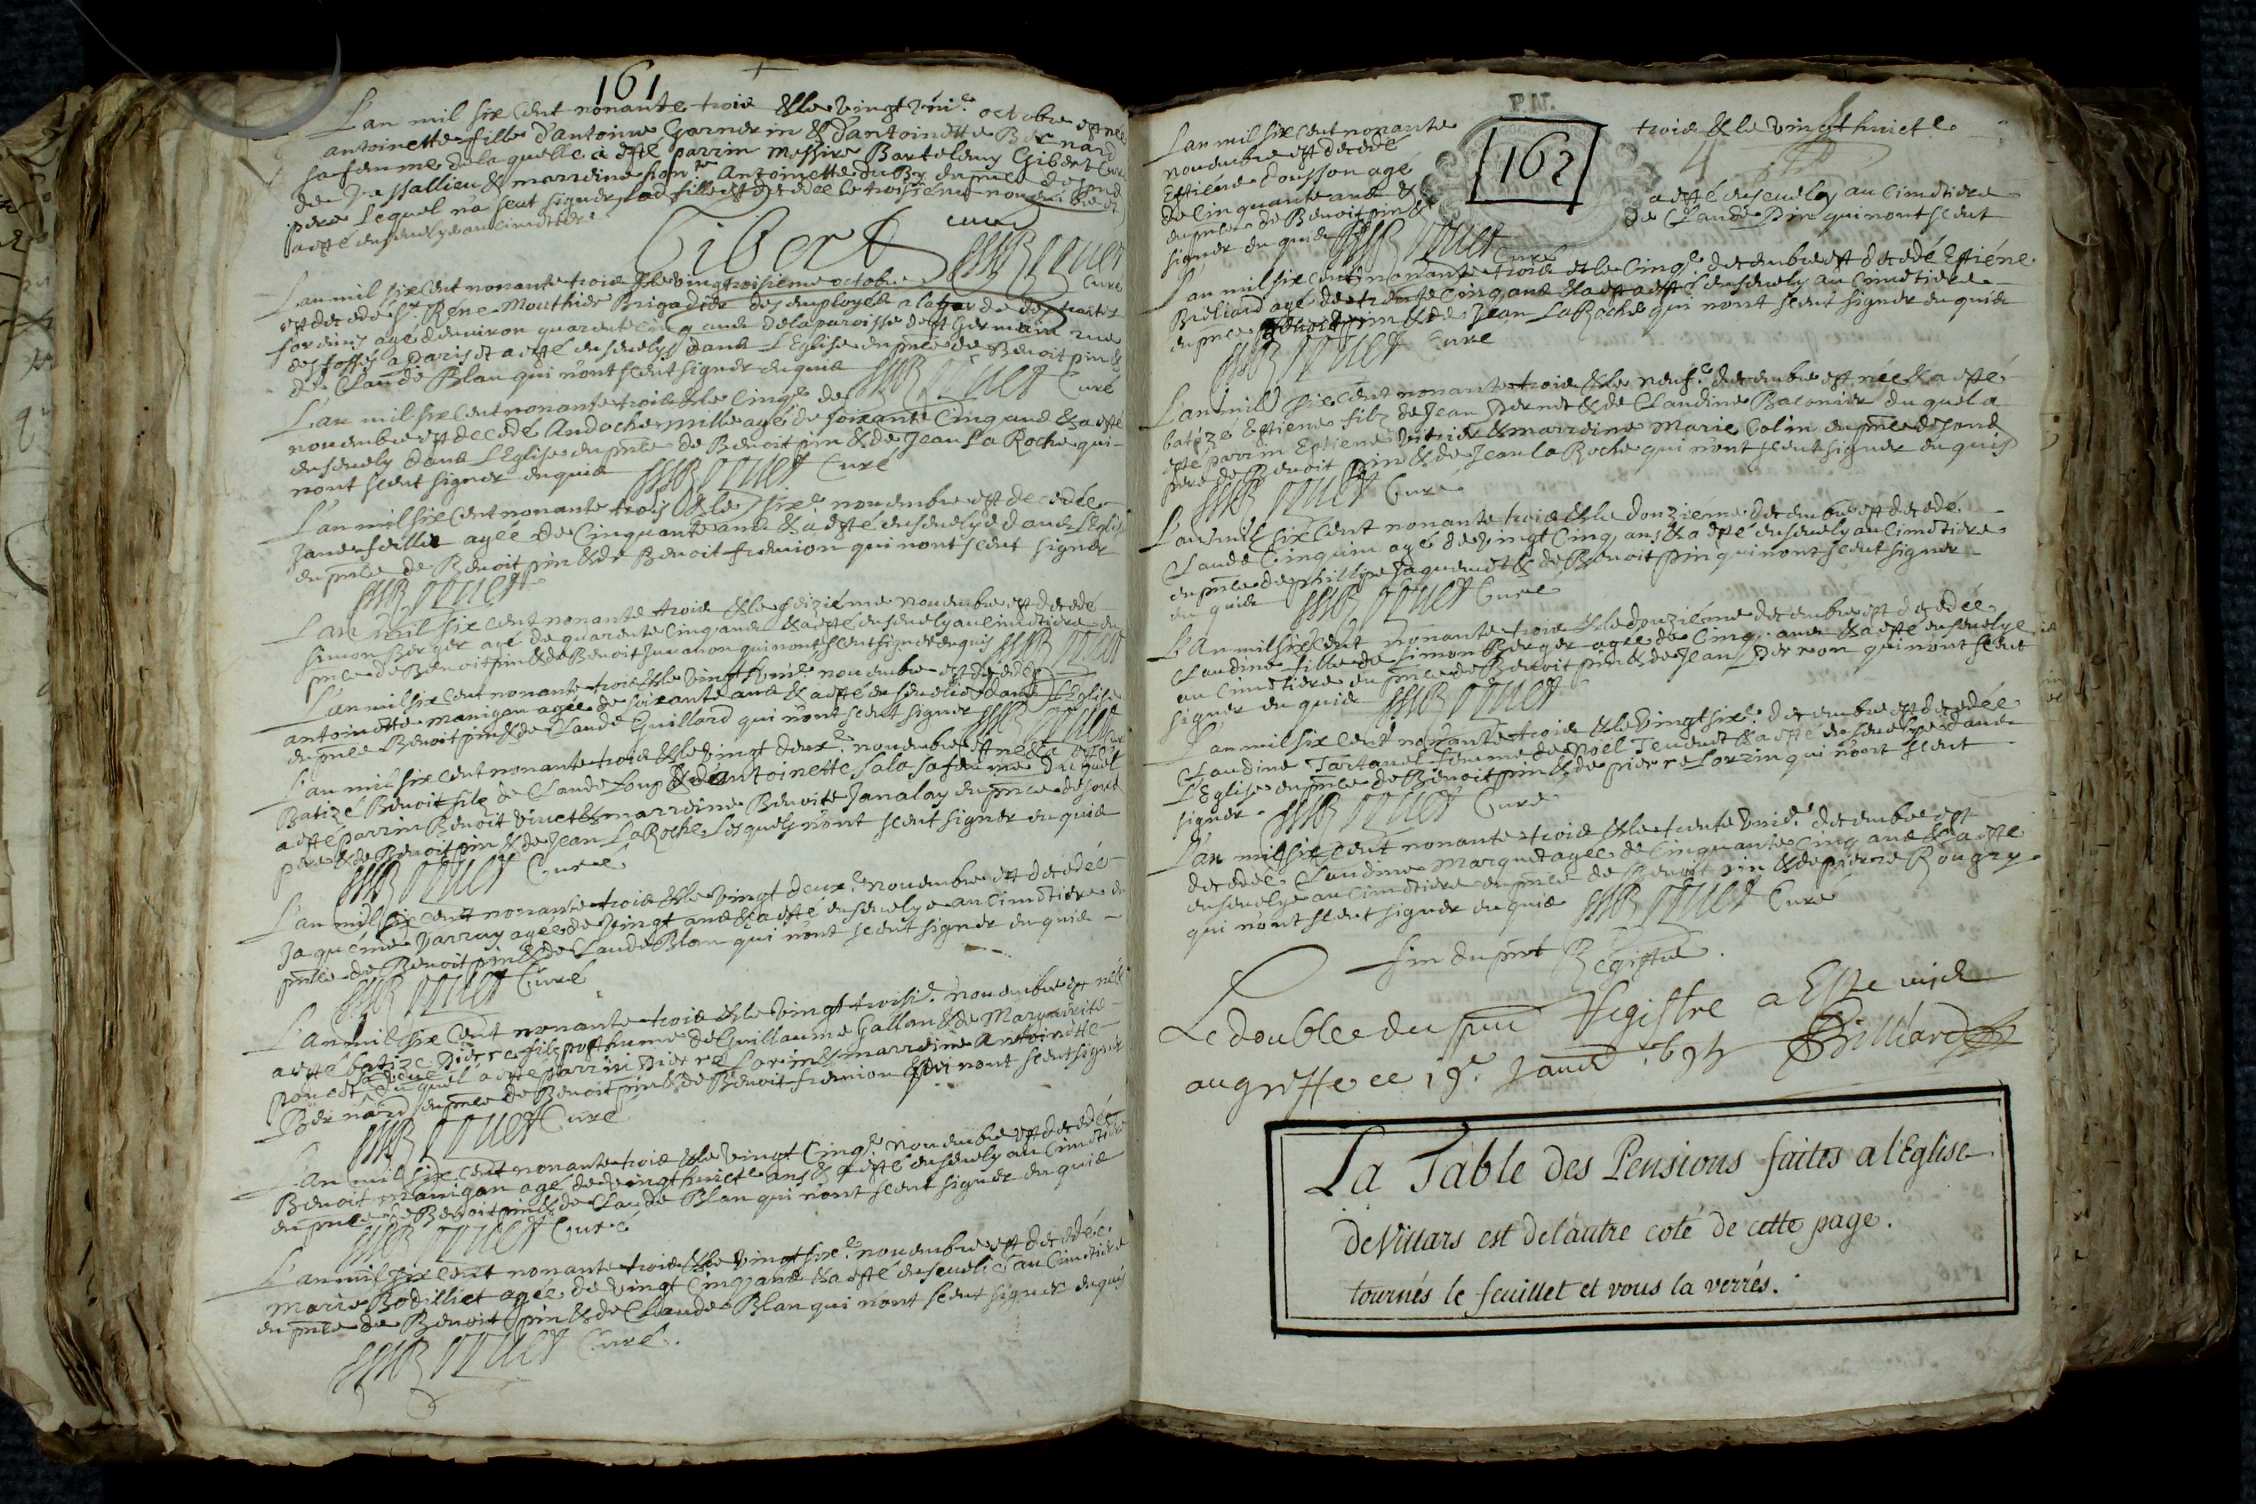 161
L'an mil six cent nonante trois & le vingt uni.e octobre est née
antoinette fille d'antoine Garnerin & d'antoinette Bernard
sa femme de laquelle a esté parrin Messire Bartelemy Gibert Curé
de Jussallieu & marreine hon.te Antoinette du en pnce de sond
pere Lequel n'a sceut signer, lad fille est decedee le troisieme novembre et
a esté ensevelye au cimetiere
Gibert curé
Curé
L'an mil six cent nonante trois & le vingtroisieme octobre
est decedé Sr. René Mouthier Brigadier des employez a la garde des
forains agé d'environ quarente cinq ans de la paroisse de St Germain rue
des fossez a Paris et a esté ensevelys dans L'Eglise en pnce de Benoit pin &
de Claude Blan qui n'ont sceut signer enquis Curé
L'an mil six cent nonante trois & le cinq.e de
novembre est decedé Andoche mille agé de soixante cinq ans & a esté
ensevely dans L'Eglise en pnce de Benoit pin & de Jean La Roche qui
n'ont sceut signer enquis Curé
L'an mil six cent nonante trois & le six.e novembre est decedée
Jane feillie agée de cinquante ans & a esté ensevelye dans L'Eglise
en pnce de Benoit pin & de Benoit fremion qui n'ont sceut signer
L'an mil six cent nonante trois & le seizième novembre est decedé
Simon Berger agé de quarente cinq ans & a esté ensevely au cimetiere en
pnce de Benoit pin & de Benoit Juvanon qui n'ont sceut signer enquis
L'an mil six cent nonante trois & le vingt uni.e novembre est decedée
antoinette manigan agée de soixante ans & a esté ensevelie dans L'Eglise
en pnce Benoit pin & de Claude Guillard qui n'ont sceut signer
L'an mil six cent nonante trois & le vingt deux.e novembre est né & a esté
Batizé Benoit filz de Claude Loup & d'antoinette Sala sa femme duquel
a esté parrin Benoit vincet & marreine Benoite Janalay en pnce de sond
pere & de Benoit pin & de Jean La Roche Lesquelz n'ont sceut signer enquis
Curé
L'an mil six cent nonante trois & le vingt deux.e novembre est decedée
Jaquéme Varruy agée de vingt ans & a esté ensevelye au cimetiere en
pnce de Benoit pin & de Claude Blan qui n'ont sceut signer enquis
Curé
L'an mil six cent nonante trois & le vingt troisi.e novembre est né &
a esté batizé Pierre filz posthume de Guillaume Gallan & de Marguerite
poncet sa veuve duquel a esté parrin Pierre Lorin & marreine Antoinette
Bernard en pnce de Benoit pin & de Benoit fremion qui n'ont sceut signer
Curé
L'an mil six cent nonante trois & le vingt cinq.e novembre est decedé
Benoit manigan agé de vingt huict ans & a esté ensevely au cimetiere
en pnce de Benoit pin & de Claude Blan qui n'ont sceut signer enquis
Curé
L'an mil six cent nonante trois & le vingt six.e novembre est decedée
Marie Bodilliet agée de vingt cinq ans & a esté ensevelie au cimetiere
en pnce de Benoit pin & de Claude Blan qui n'ont sceut signer enquis
Curé.
162
L'an mil six cent nonante trois & le vingt huict.e
novembre est decedé
Estiéne Cousson agé
de cinquante ans & a esté ensevely au cimetiere
en pnce de Benoit pin & de Claude Pin qui n'ont sceut
signer enquis Curé
L'an mil six cent nonante trois et le cinq.e decembre est decedé Estiéne
Breliard agé de trente cinq ans & a esté ensevely au cimetiere
en pnce Benoit pin & de Jean La Roche qui n'ont sceut signer enquis
Curé
L'an mil six cent nonante trois & le neuf.e decembre est née & a esté
batizé Estiene filz de Jean Pernet & de Claudine Baconier duquel a
esté parrin Estiene & marreine Marie Colin en pnce de sond
pere de Benoit pin & de Jean la Roche qui n'ont sceut signer enquis
Curé
L'an mil six cent nonante trois & le douzieme decembre est decedé
Claude Cinquin agé de vingt cinq ans & a esté ensevely au cimetiere
en pnce de phillipe Jaquemet & de Benoit Pin qui n'ont sceut signer
enquis Curé
L'An mil six cent nonante trois & le douzième decembre est decedée
Claudine fille de Simon Berger agée de cinq ans & a esté ensevelye
au cimetiere en pnce de Benoit pin & de Jean Perron qui n'ont sceut
signer enquis
L'an mil six cent nonante trois & le vingt six.e decembre est decedée
Claudine Tartanet femme de Noel Tenenet & a esté ensevelye dans
L'Eglise en pnce de Benoit pin & de pierre Lorrin qui n'ont sceut
signer. Curé
L'an mil six cent nonante trois & le trente uni.e decembre est
decedée Claudine Marquet agée de cinquante cinq ans & a esté
ensevelye au cimetiere en pnce de Benoit pin & de pierre Rougny
qui n'ont sceut signer enquis Curé
fin du pnt Registre.
Le double du pnt Registre a Esté mis
au greffe ce 19.e Janv.r 1694 Billiard
La Table des Pensions faites a l'Eglise
de Villars est de l'autre coté de cette page.
tournés le feuillet et vous la verrés.